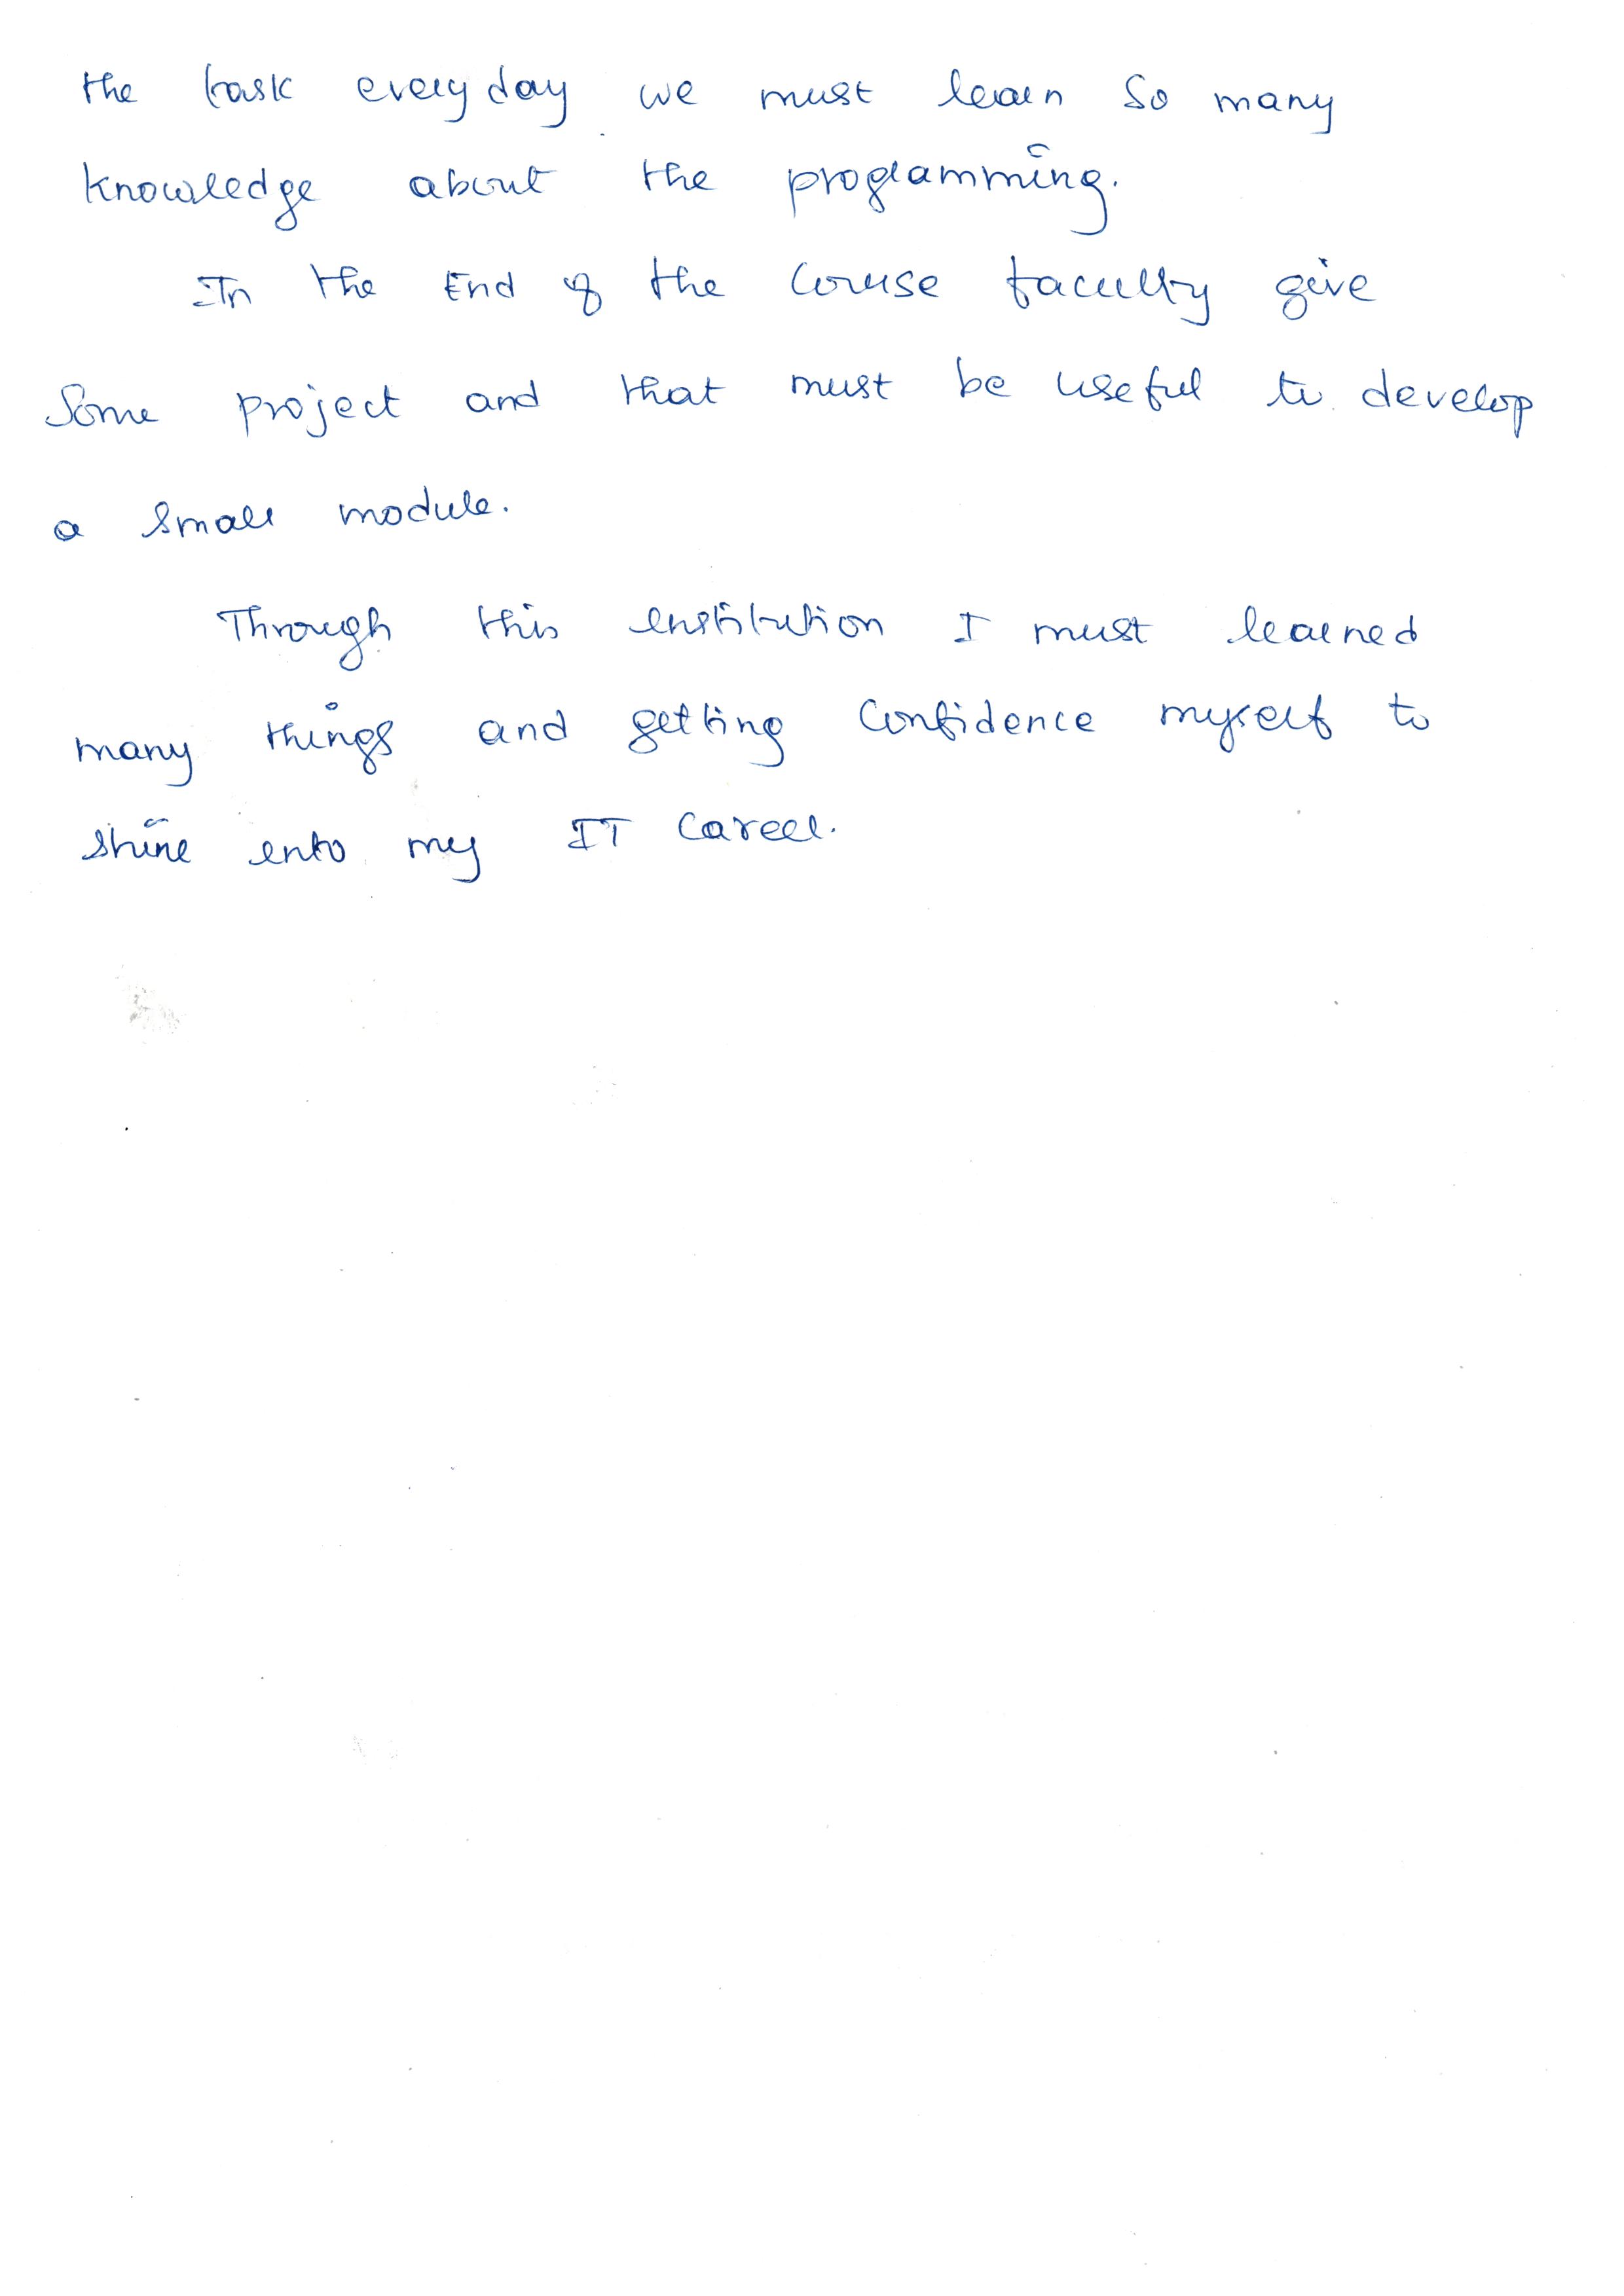 the task everyday we must learn so many
knowledge about the programming.
In the End of the Course faculty give
Some project and that must be useful to develop
a small module.
Through this institution I must learned
many things and getting Confidence myself to
shine into my IT Career.